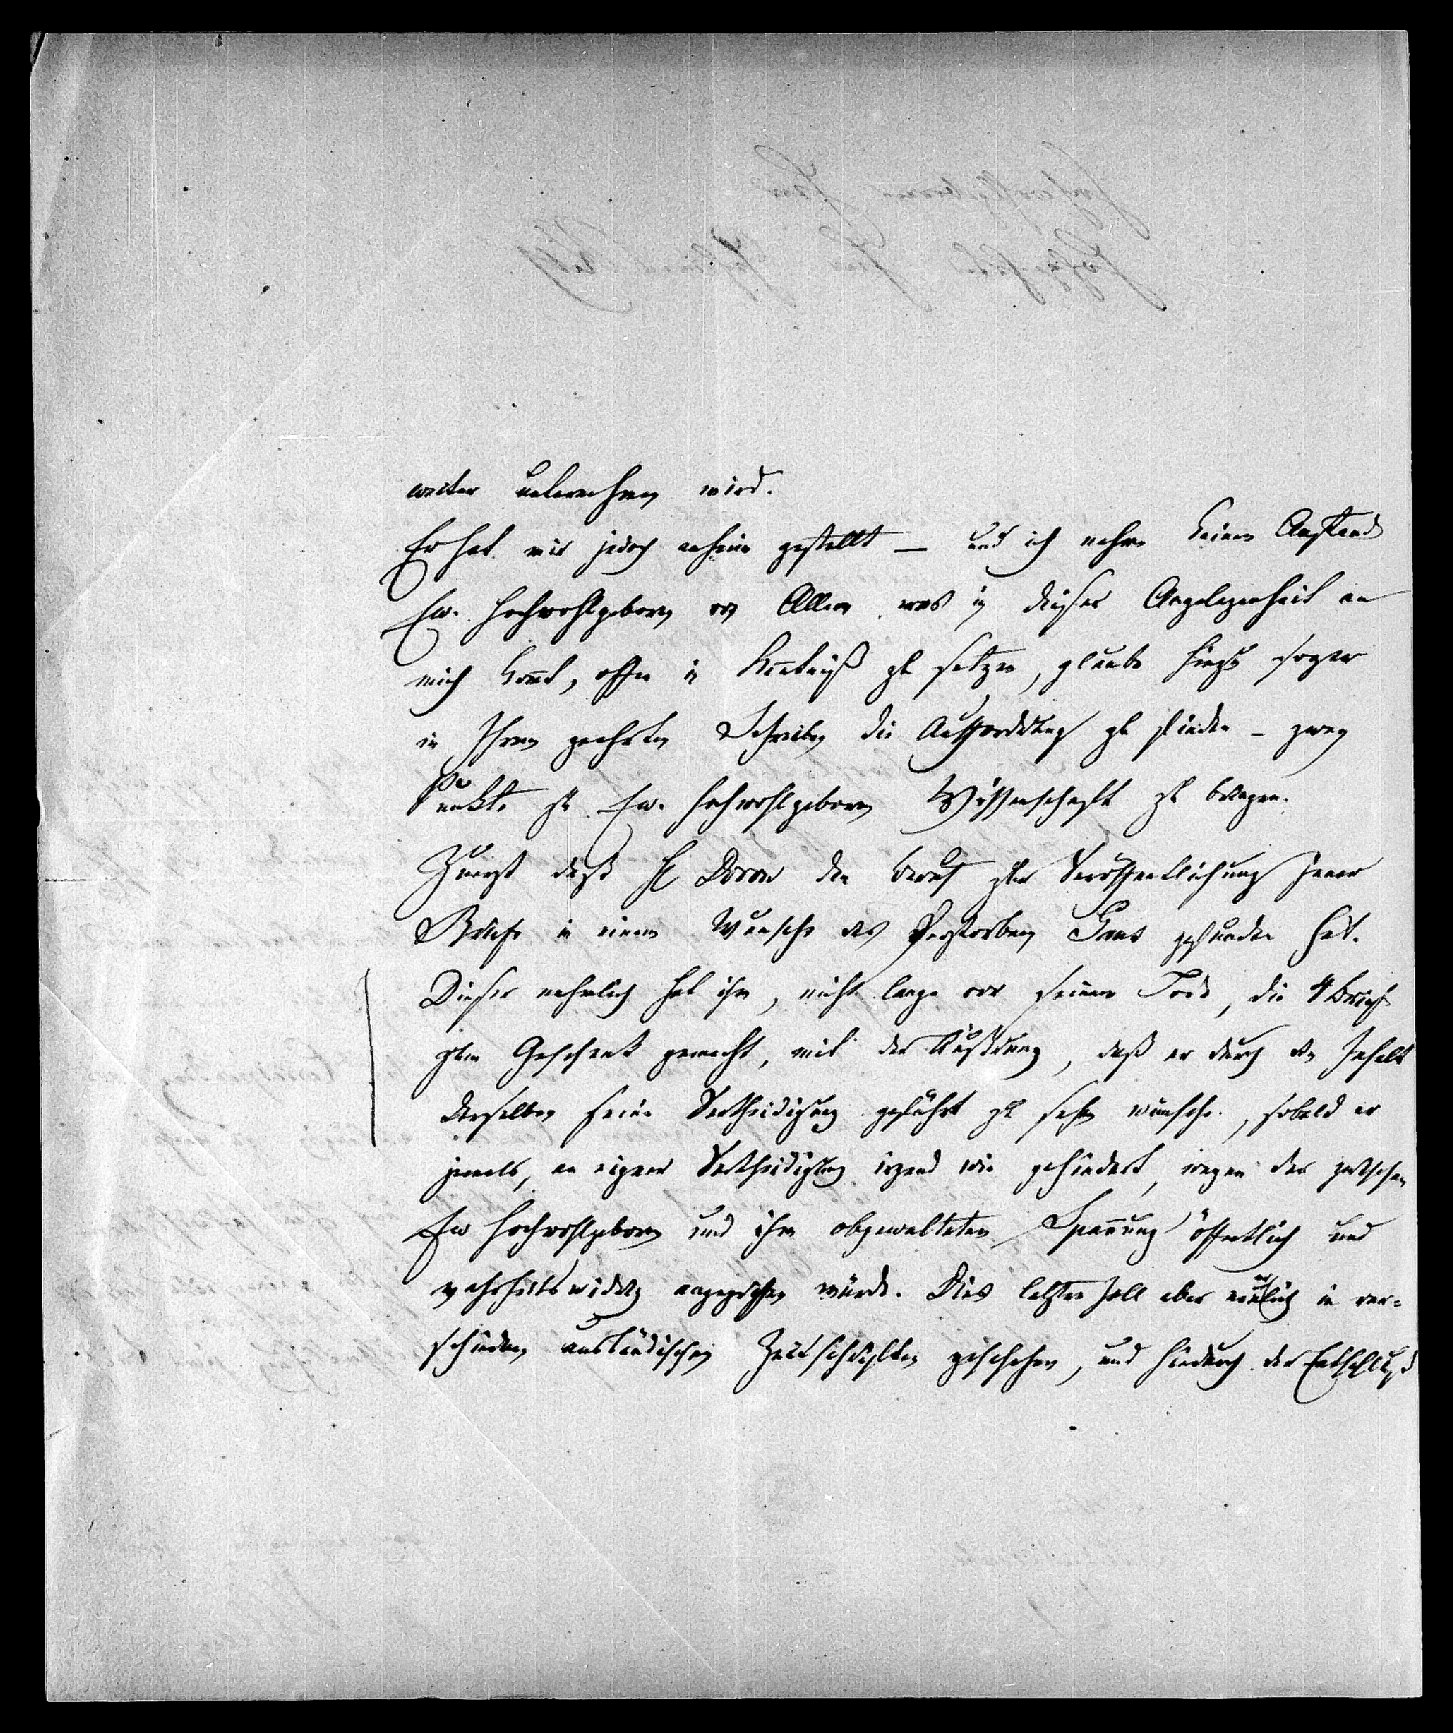 weiter unternehmen wird.
Er hat mir jedoch anheim gestellt – und ich nehme keinen Anstand
Ew. Hochwohlgeboren von Allem was in dieser Angelegenheit an
mich kommt, offen in Kentniß zu setzen, glaube hiezu sogar
in Ihrem geehrten Schreiben die Aufforderung zu finden – zwey
Punkte zu Ew. Hochwohlgeboren Wissenschaft zu bringen.
Zuerst daß H Dorow den Beruf zur Veröffentlichung jener
Briefe in einem Wunsche des Verstorbenen Gans gefunden hat.
Dieser nehmlich hat ihm, nicht lange vor seinem Tode, die 4 Briefe
zum Geschenk gemacht, mit der Äußerung, daß er durch den Inhalt
derselben seine Vertheidigung geführt zu sehen wünsche, sobald er
jemals, an eigener Vertheidigung irgend wie gehindert, wegen der zwischen
Ew Hochwohlgeboren und ihm obgewalteten Spannung öffentlich und
wahrheitswidrig angegriffen würde. Dies letztere soll aber neulich in ver=
schiedenen ausländischen Zeitschriften geschehen, und hiedurch der Entschluß